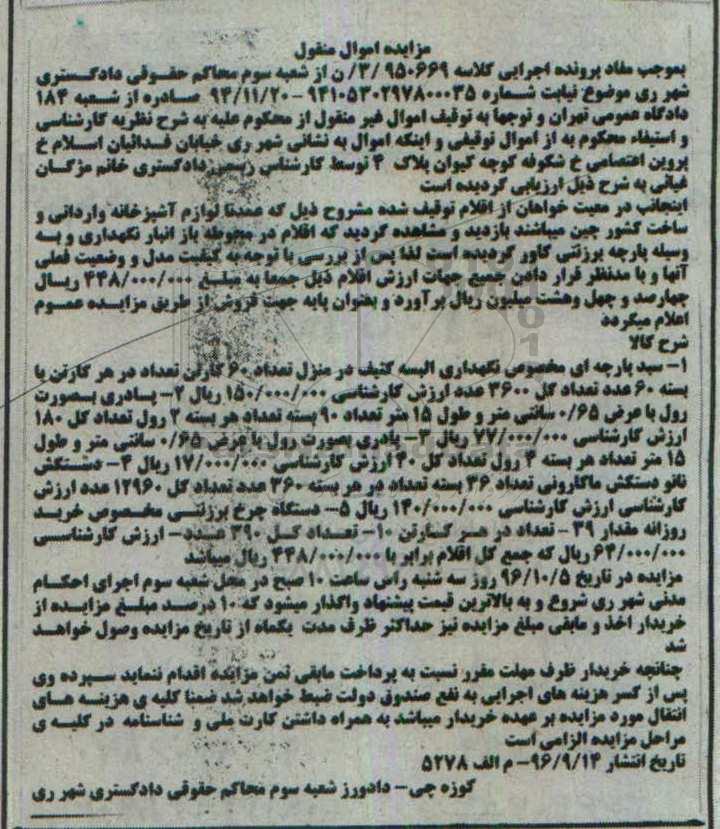 مزایده اموال منقول
بموجب مفاد پرونده اجرایی کلاسه ۹۵۰۶۶۹ /۳/ ن از شعبه سوم محاکم حقوقی دادگستری
شهر ری موضوع نیابت شماره ۹۴۱۰۵۳۰۲۹۷۸۰۰۰۳۵ – ۹۴/۱۱/۲۰ صادره از شعبه ۱۸۴
دادگاه عمومی تهران و توجها به توقیف اموال غیر منقول از محکوم علیه به شرح نظریه کارشناسی
و استیفاء محکوم به از اموال توقیفی و اینکه اموال به نشانی شهر ری خیابان فدائیان اسلام خ
پروین اعتصامی خ شکوفه کوچه کیوان پلاک ۴ توسط کارشناس رسمی دادگستری خانم مژگان
غیاثی به شرح ذیل ارزیابی گردیده است
اینجانب در معیت خواهان از اقلام توقیف شده مشروح ذیل که عمدتا لوازم آشپزخانه وارداتی و
ساخت کشور چین میباشند بازدید و مشاهده گردید که اقلام در محوطه باز انبار نگهداری و به
وسیله پارچه برزنتی کاور گردیده است لذا پس از بررسی با توجه به کیفیت مدل و وضعیت فعلی
آنها و با مدنظر قرار دادن جمیع جهات ارزش اقلام ذیل جمعا به مبلغ ۴۴۸/۰۰۰/۰۰۰ ریال
چهارصد و چهل وهشت میلیون ریال برآورد و بعنوان پایه جهت فروش از طریق مزایده عموم
اعلام میگردد
شرح کالا
۱- سبد پارچه ای مخصوص نگهداری البسه کثیف در منزل تعداد ۶۰ کارتن تعداد در هر کارتن یا
بسته ۶۰ عدد تعداد کل ۳۶۰۰ عدد ارزش کارشناسی ۱۵۰/۰۰۰/۰۰۰ ریال ۲- پادری بصورت
رول با عرض ۰/۶۵ سانتی متر و طول ۱۵ متر تعداد ۹۰ بسته تعداد هر بسته ۲ رول تعداد کل ۱۸۰
ارزش کارشناسی ۷۷/۰۰۰/۰۰۰ ریال ۳- پادری بصورت رول با عرض ۰/۶۵ سانتی متر و طول
۱۵ متر تعداد هر بسته ۴ رول تعداد کل ۴۰ ارزش کارشناسی ۱۷/۰۰۰/۰۰۰ ریال ۴- دستکش
نانو دستکش ماکارونی تعداد ۳۶ بسته تعداد در هر بسته ۳۶۰ عدد تعداد کل ۱۲۹۶۰ عدد ارزش
کارشناسی ارزش کارشناسی ۱۴۰/۰۰۰/۰۰۰ ریال ۵- دستگاه چرخ برزنتی مخصوص خرید
روزانه مقدار ۳۹ – تعداد در هر کارتن ۱۰- تعداد کل ۳۹۰ عدد- ارزش کارشناسی
۶۴/۰۰۰/۰۰۰ ریال که جمع کل اقلام برابر با ۴۴۸/۰۰۰/۰۰۰ ریال میباشد
مزایده در تاریخ ۹۶/۱۰/۵ روز سه شنبه راس ساعت ۱۰ صبح در محل شعبه سوم اجرای احکام
مدنی شهر ری شروع و به بالاترین قیمت پیشنهاد واگذار میشود که ۱۰ درصد مبلغ مزایده از
خریدار اخذ و مابقی مبلغ مزایده نیز حداکثر ظرف مدت یکماه از تاریخ مزایده وصول خواهد
شد
چنانچه خریدار ظرف مهلت مقرر نسبت به پرداخت مابقی ثمن مزایده اقدام ننماید سپرده وی
پس از کسر هزینه های اجرایی به نفع صندوق دولت ضبط خواهد شد ضمنا کلیه ی هزینه های
انتقال مورد مزایده بر عهده خریدار میباشد به همراه داشتن کارت ملی و شناسنامه در کلیه ی
مراحل مزایده الزامی است
تاریخ انتشار ۹۶/۹/۱۴- م الف ۵۲۷۸
کوزه چی- دادورز شعبه سوم محاکم حقوقی دادگستری شهر ری